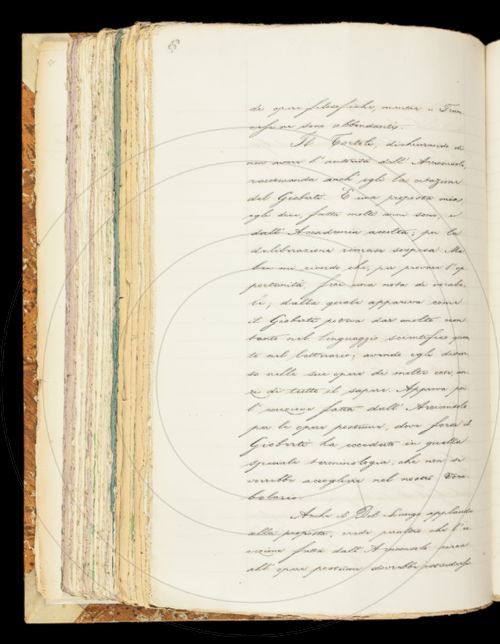 di opere filosofiche, mentre i Fran-
cesi ne sono abbondanti.
Il Tortoli, dichiarando di
non avere l'autorità dell'Arciconsolo,
raccomanda anch'egli la citazione
del Gioberti. È una proposta mia,
egli dice, fatta molti anni sono e
dall'Accademia accolta; poi la
deliberazione rimase sospesa. Ma
ben mi ricordo che, per provare l'op-
portunità, feci una nota di vocabo-
li, dalla quale appariva come
il Gioberti poteva dar molto non
tanto nel linguaggio scientifico quan-
to nel letterario; avendo egli discor-
so nelle sue opere di molte cose, an-
zi di tutto il sapere. Approva poi
l'eccezione fatta dall'Arciconsolo
per le opere postume, dove forse il
Gioberti ha ecceduto in quella
speciale terminologia, che non si
vorrebbe accogliere nel nostro Voca-
bolario.
Anche il Del Lungo applaude
alla proposta, crede peraltro che l'ec-
cezione fatta dall'Arciconsolo
all' opere postume dovrebbe